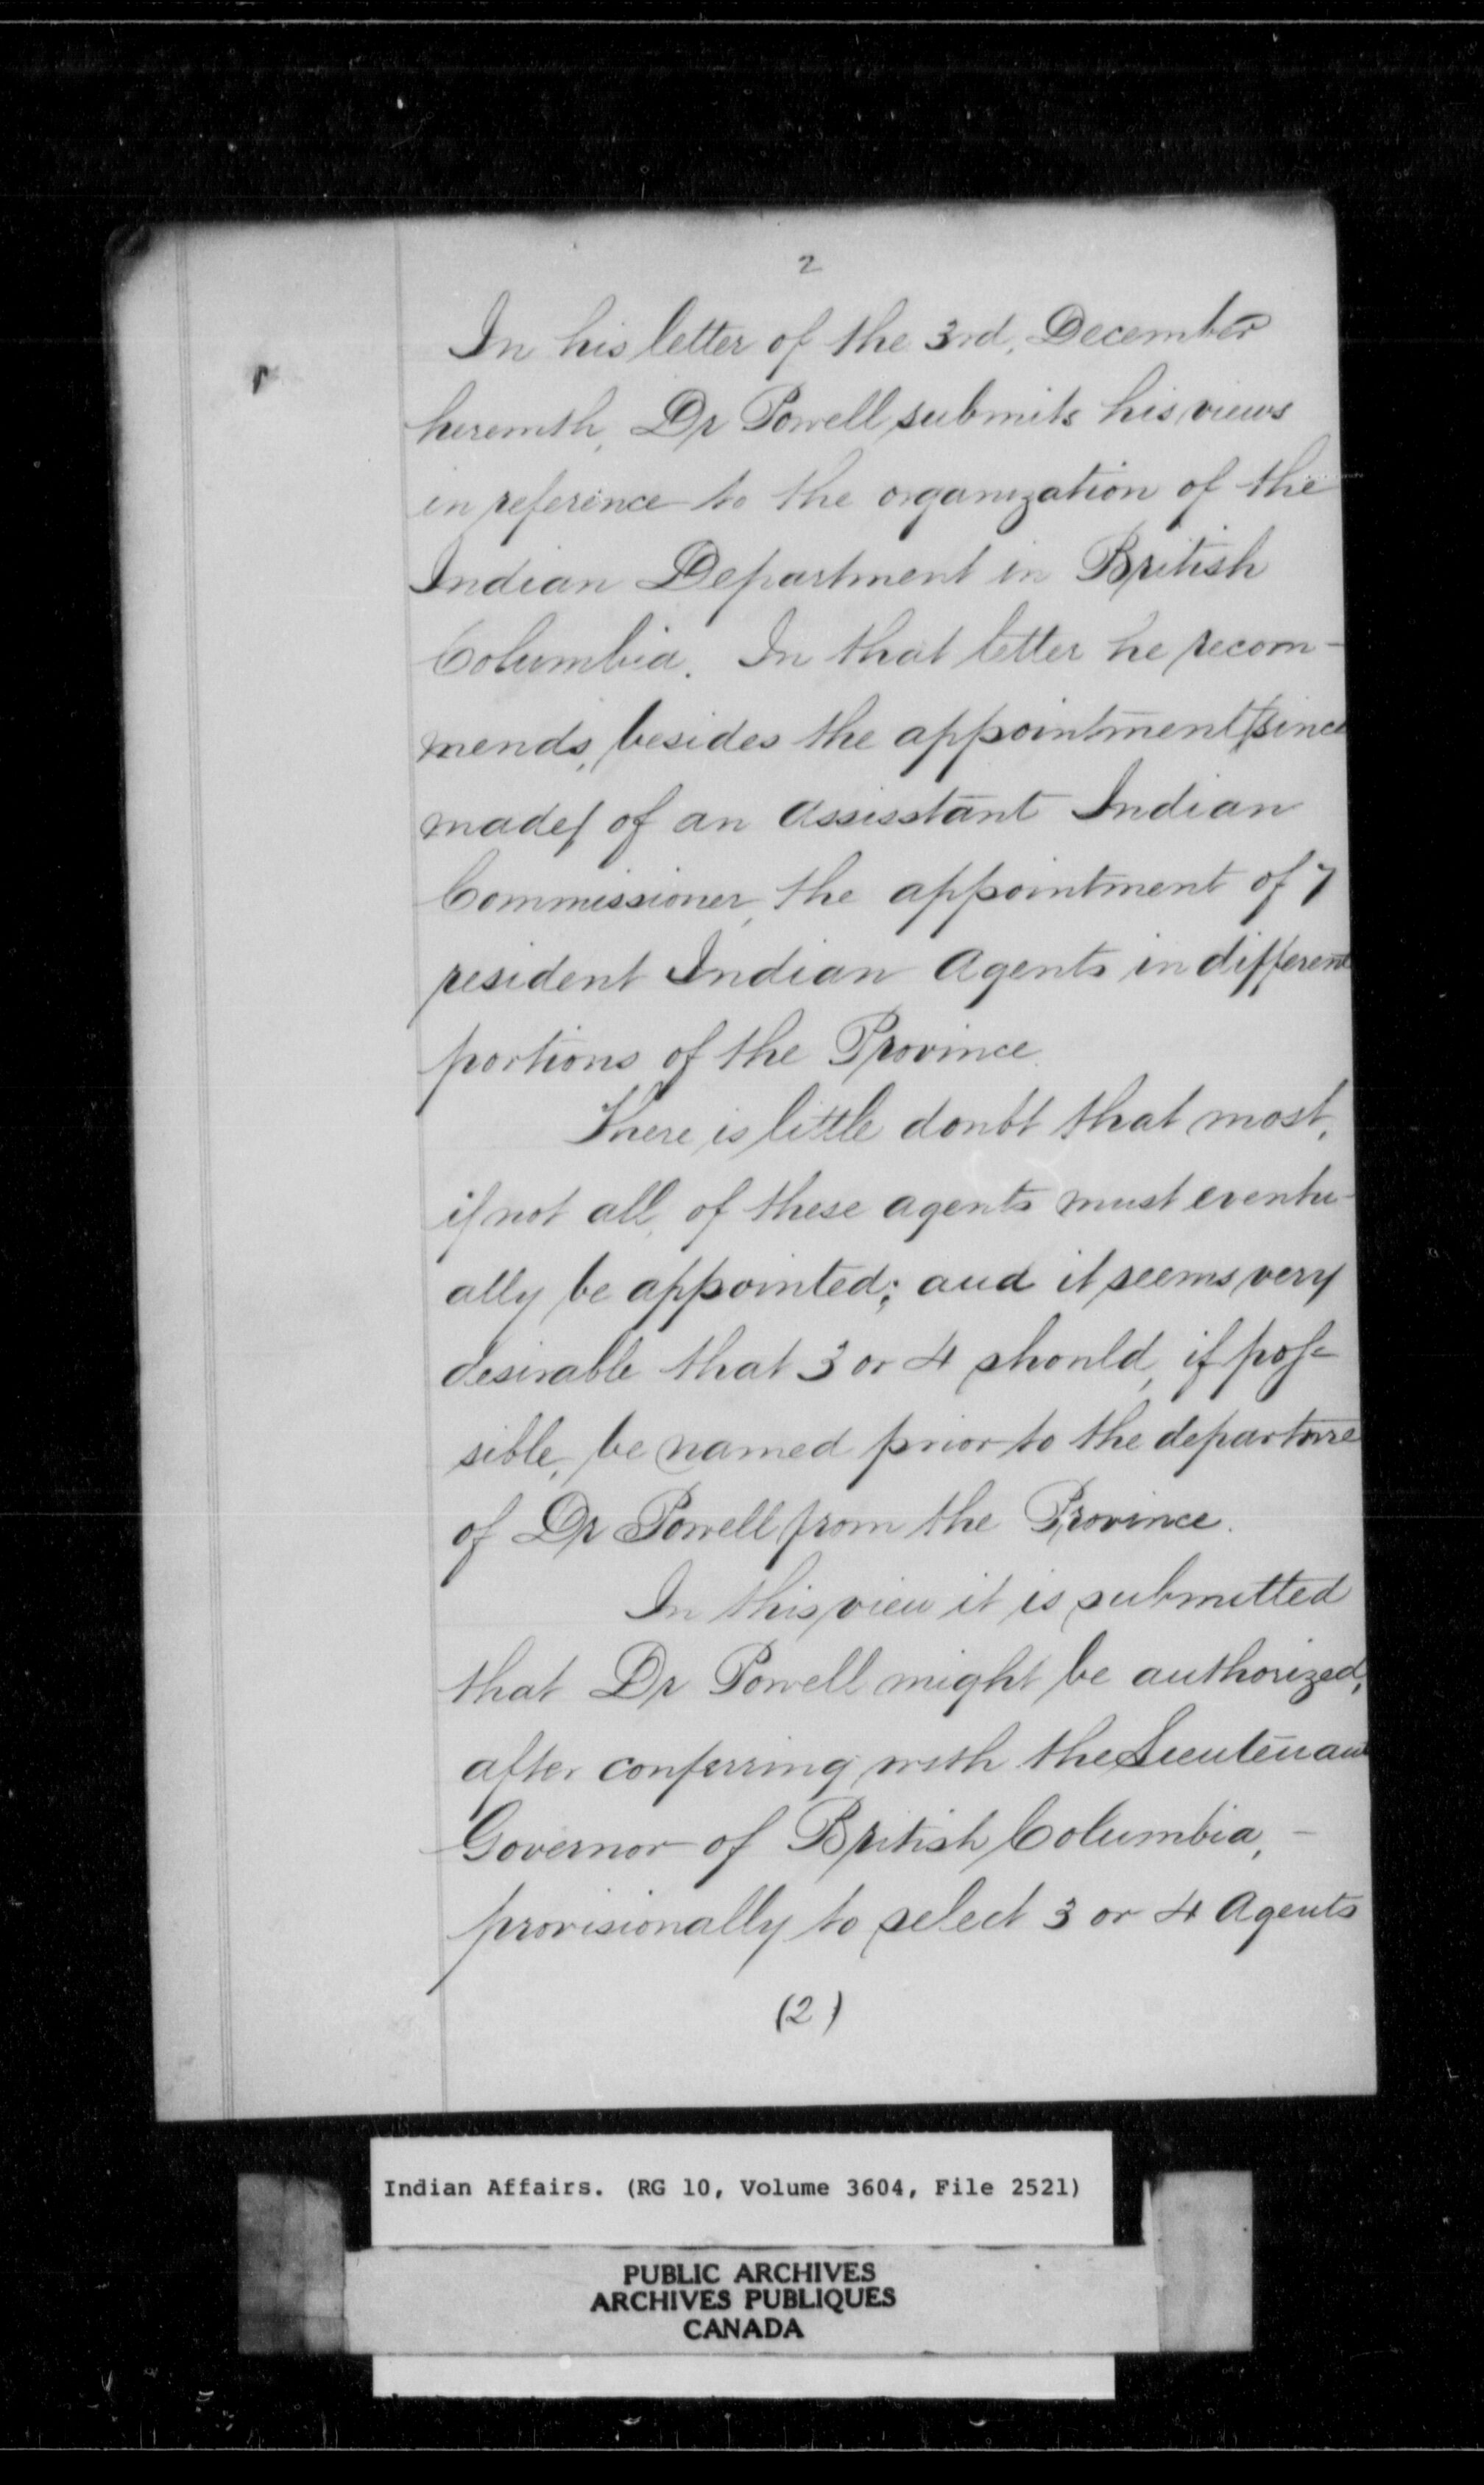 2
In his letter of the 3rd. December
herewith, Dr Powell submits his views
in reference to the organization of the
Indian Department in British
Columbia. In that letter he recom-
mends, besides the appointment (since
made) of an Assisstant Indian
Commissioner, the appointment of 7
resident Indian Agents in different
portions of the Province.
There is little doubt that most,
if not all, of these agents must eventu-
ally be appointed; and it seems very
desirable that 3 or 4 should, if pos-
sible, be named prior to the departure
of Dr Powell from the Province.
In this view it is submitted
that Dr Powell might be authorized,
after conferring with the Lieutenant
Governor of British Columbia, -
provisionally to select 3 or 4 Agents
(2)
Indian Affairs. (RG 10, Volume 3604, File 2521)
PUBLIC ARCHIVES
ARCHIVES PUBLIQUES
CANADA